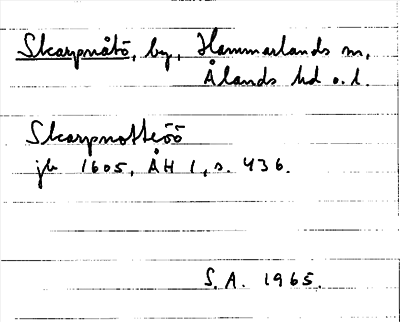 Skarpnåtö, by, Hammarlands sn,
Ålands hd o. l.
Skarpnotteöö
jb 1605, ÅH 1, s. 436.
S. A. 1965.